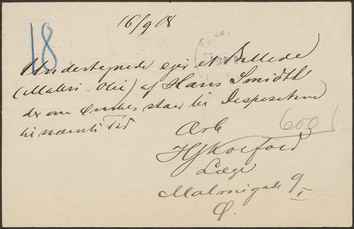 16/9 08
18
Undertegnede ejer et Billede
(Maleri-Olie) af Hans Smidth
der om Ønskes staar til Disposition
til nævnte Tid
Arb
600
HJKoefoed
Læge
Malmøgade 9,
Ø.